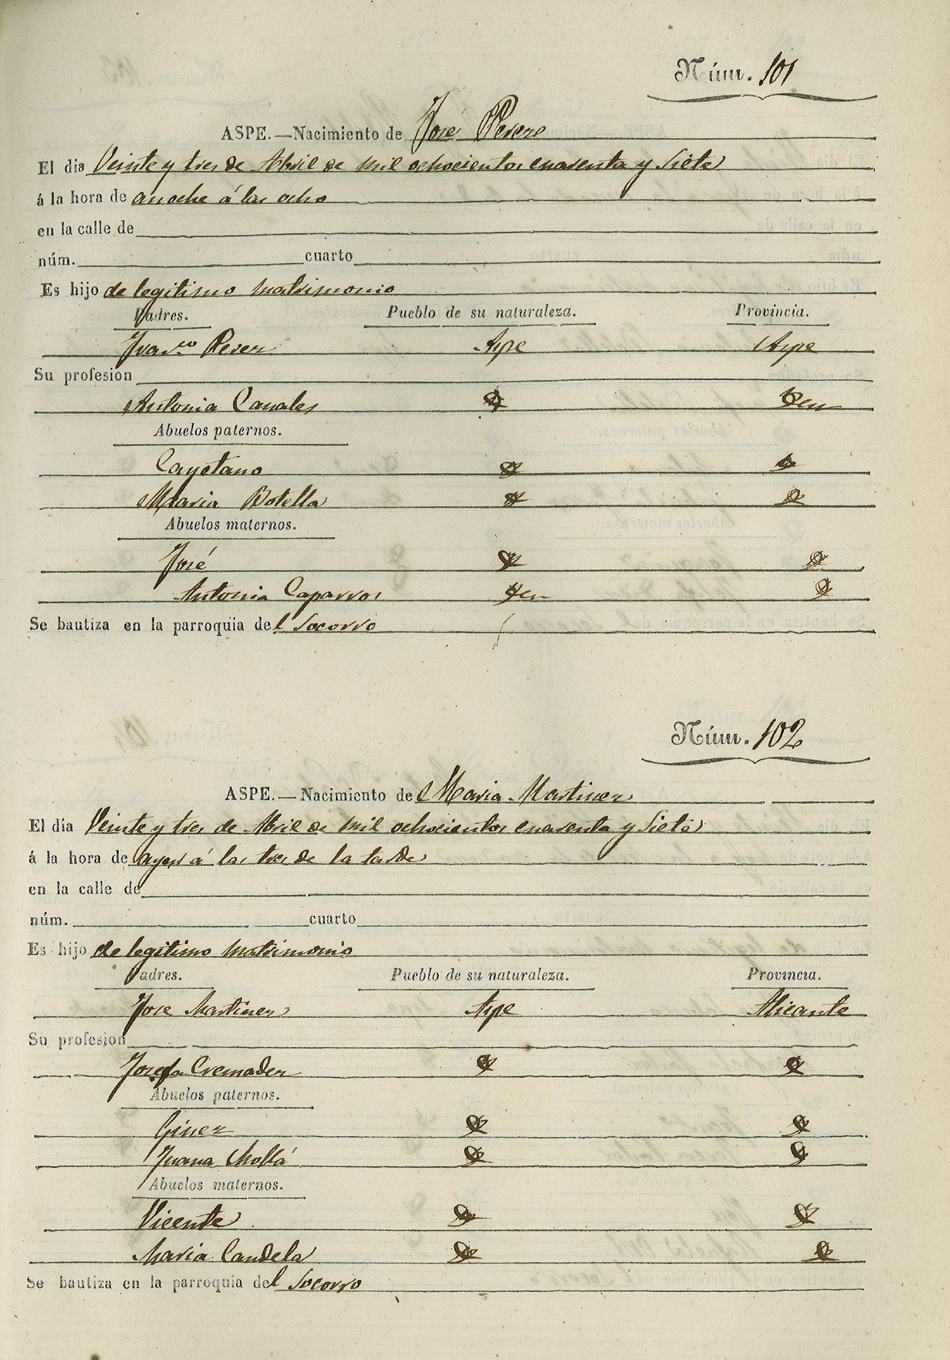 Núm. 101
ASPE.—Nacimiento de José Perez
El dia Veinte y tres de Abril de mil ochocientos cuarenta y Siete
á la hora de anoche á las ocho
en la calle de
núm. cuarto
Es hijo de legitimo matrimonio
Padres. Pueblo de su naturaleza. Provincia.
Franco Perez Aspe Aspe
Su profesion
Antonia Canales
Abuelos paternos.
Cayetano
Maria Botella
Abuelos maternos.
José
Antonia Caparros
Se bautiza en la parroquia del Socorro
Núm. 102
ASPE.—Nacimiento de Maria Martinez
El día Veinte y tres de Abril de mil ochocientos cuarenta y Siete
á la hora de ayer á las tres de la tarde
en la calle de
núm. cuarto
Es hijo de legitimo matrimonio
Padres. Pueblo de su naturaleza. Provincia.
Jose Martinez Aspe Alicante
Su profesion
Josefa Cremades
Abuelos paternos.
Ginez
Juana Mollá
Abuelos maternos.
Vicente
Maria Candela
Se bautiza en la parroquia del Socorro